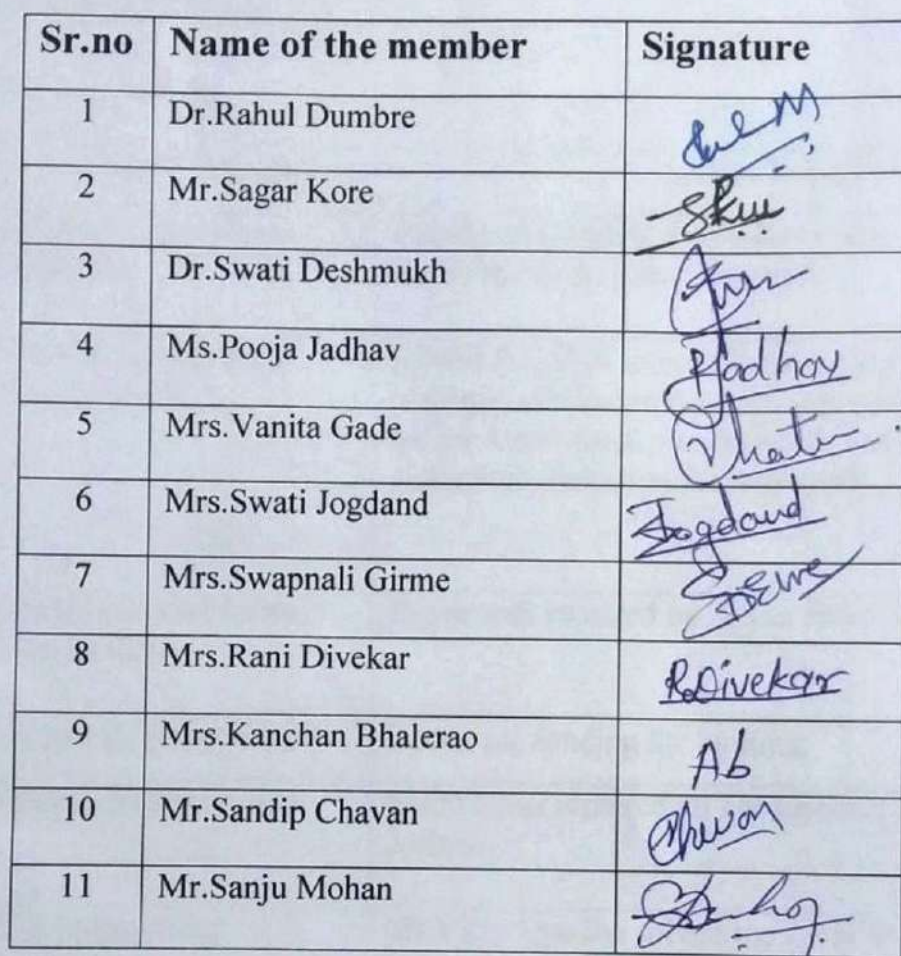 Sr.no Name of the member Signature
1 Dr.Rahul Dumbre
2 Mr.Sagar Kore
3 Dr.Swati Deshmukh
4 Ms.Pooja Jadhav PJadhav
5 Mrs.Vanita Gade
6 Mrs.Swati Jogdand Jogdand
7 Mrs.Swapnali Girme
8 Mrs.Rani Divekar R.Divekar
9 Mrs.Kanchan Bhalerao Ab
10 Mr.Sandip Chavan
11 Mr.Sanju Mohan